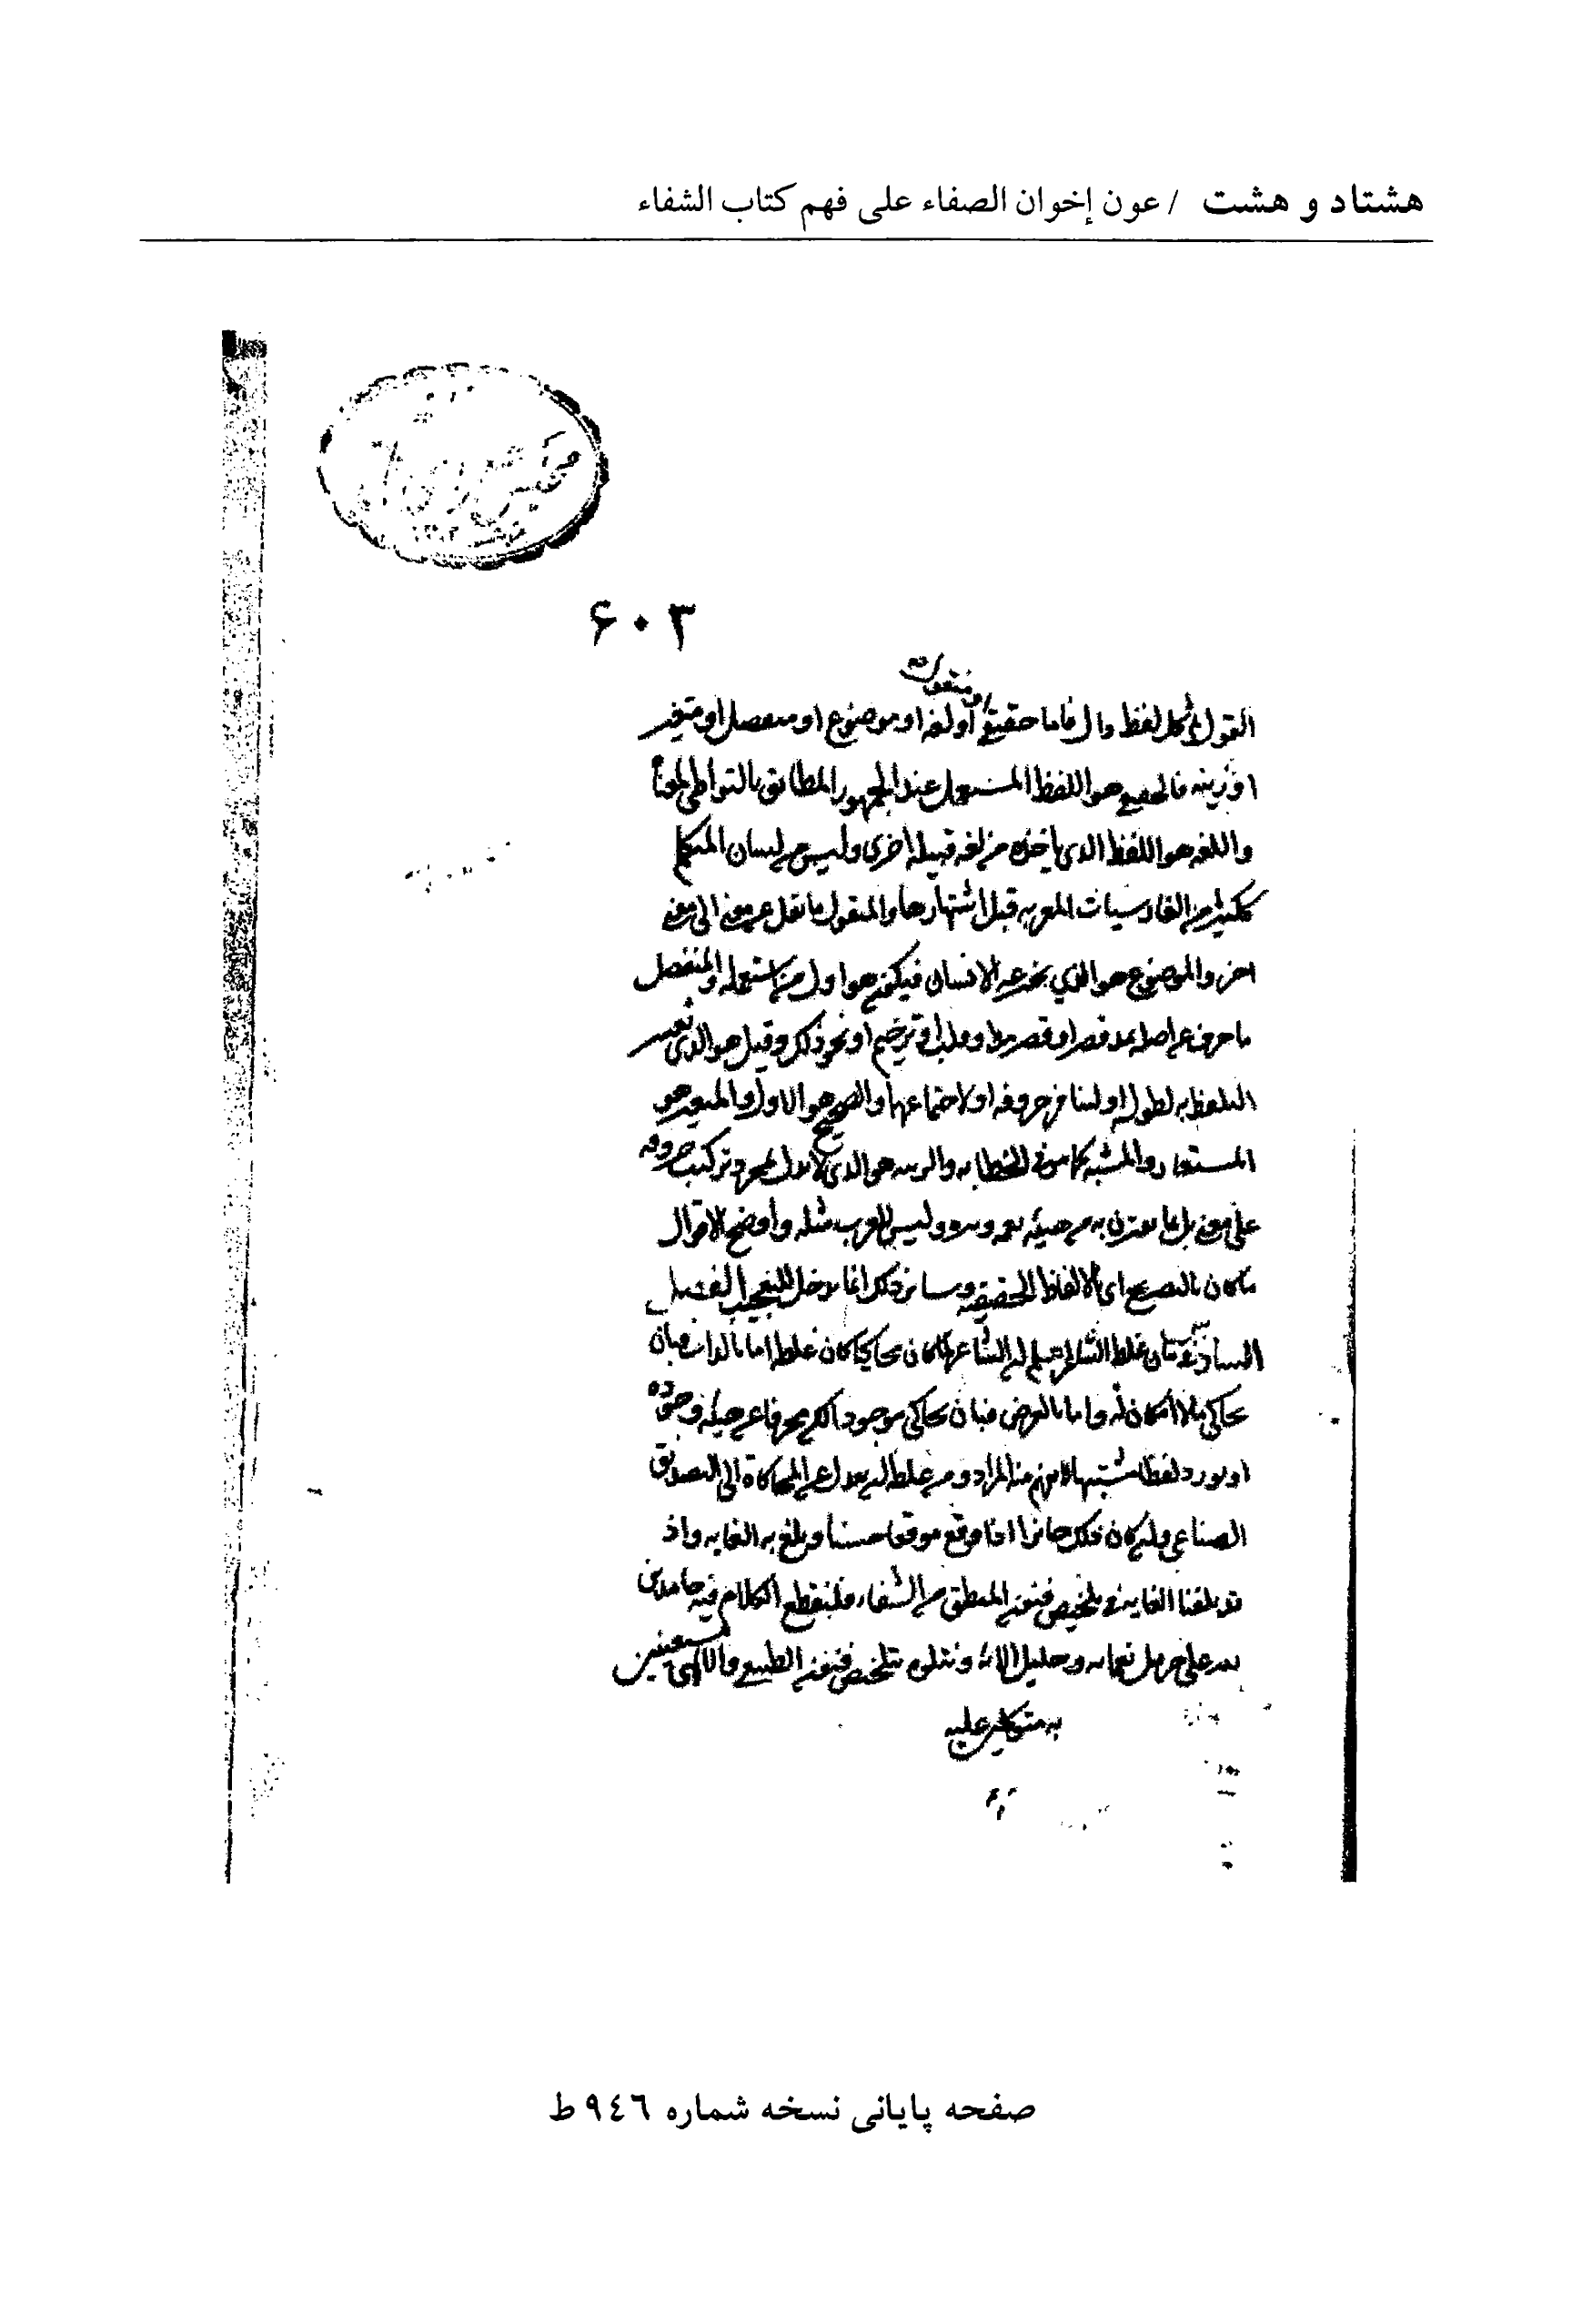 هشتاد و هشت / عون إخوان الصفاء على فهم كتاب الشفاء
۶۰۳
او منقول
القول كل لفظ دال فاما حقيقي او لغه او موضوع او منفصل او متغير
او زينه فالحقيقي هو اللفظ المستعمل عند الجمهور المطابق بالتواطي
واللغه هو اللفظ الذي ياخذه من لغه قبيله اخرى وليس من لسان المتكلم
ككثير من الفارسيات المعربه قبل اشتهارها والمنقول ما نقل عن معنى الى معنى
اخر والموضوع هو الذي يخترعه الانسان فيكون هو اول من استعمله والمنفصل
ما حرف عن اصله بمد قصر او قصر مد او قلب او ترخيم او نحو ذلك وقيل هو الذي تعسر
التلفظ به لطوله او لتنافر حروفه او لاجتماعها والصحيح هو الاول والمتغير هو
المستعار والمشبه كما مر في الخطابه والزينه هو الذي لا يدل بمجرد تركيب حروفه
على معنى بل بما يقترن به من هيئه وليس للعرب مثله واوضح الاقوال
ما كان بالتصريح اي الالفاظ الحقيقيه وسائر ذلك انما يدخل للتعجيب الفصل
السادس غلط الشاعر لما كان محاكيا كان غلطه اما بالذات فبان
يحاكي بما لا امكان له واما بالعرض فبان يحاكي موجودا لكن محرفا عن هيئه وجوده
او يورد لفظا مشتبها لا يفهم منه المراد ومن غلطه ان يعدل عن المحاكاة الى التصديق
الصناعي وان كان ذلك جائزا اذا وقع موقعا حسنا وبلغ به الغايه واذ
قد بلغنا الغايه في تلخيص فنون المنطق من الشفاء فلنقطع الكلام فيه حامدين
لله على جزيل نعمائه وجليل الائه ونتلوه بتلخيص فنون الطبيعي والالهي مستعينين
به متوكلين عليه
صفحه پایانی نسخه شماره ٩٤٦ ط